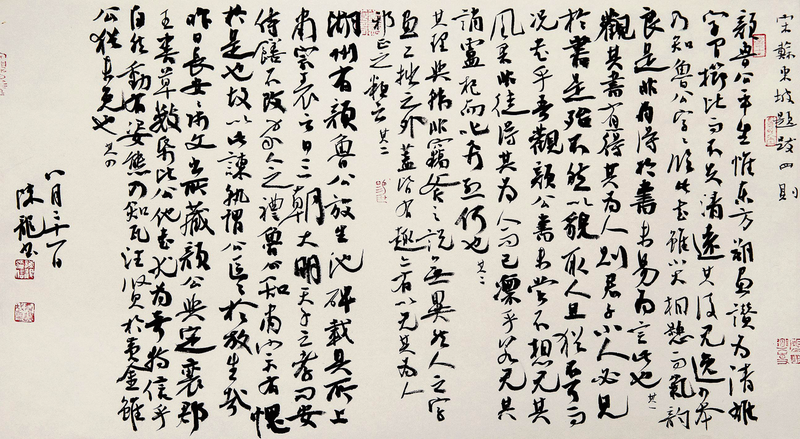 宋蘇東坡題跋四則
顏魯公平生惟東方朔畫讚為清雄
字間櫛比而不失清遠其後見逸少本
乃知魯公字字臨此書雖小大相懸而氣韻
良是非自得於書未易為言此也 其一
觀其書有以得其為人則君子小人必見
於書是殆不然以貌取人且猶不可而
況書乎吾觀顏公書未嘗不想見其
風采非徒得其為人而已凜乎若見其
誚盧杞而叱希烈何也
其理與韓非竊斧之說無異然人之字
畫工拙之外蓋皆有趣亦有以見其為人
邪正之粗云 其二
湖州有顏魯公放生池碑載其所上
肅宗表云一日三朝大明天子之孝問安
侍膳不改家人之禮魯公知肅宗有愧
於是也故以此諫孰謂公區區於放生哉
昨日長安安師文出所藏顏公與定襄郡
王書草數紙比公他書尤為奇特信手
自然動有姿態乃知瓦注賢於黃金雖
公猶未免也 其四
八月三十一日